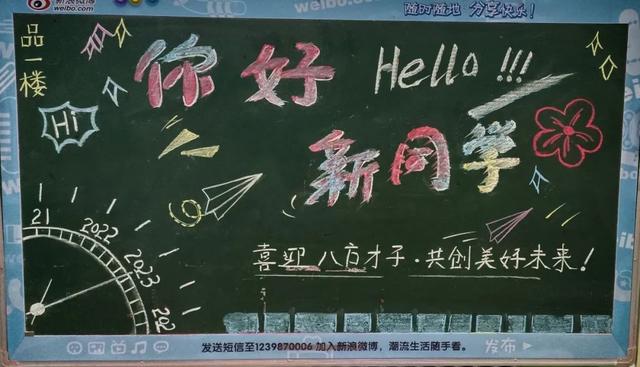 新浪微博
weibo.com
随时随地 分享快乐!
品一楼
你好 Hello!!!
Hi
新同学
喜迎八方才子·共创美好未来!
21
2022
2023
202
发送短信至1239870006 加入新浪微博，潮流生活随手看。
发布